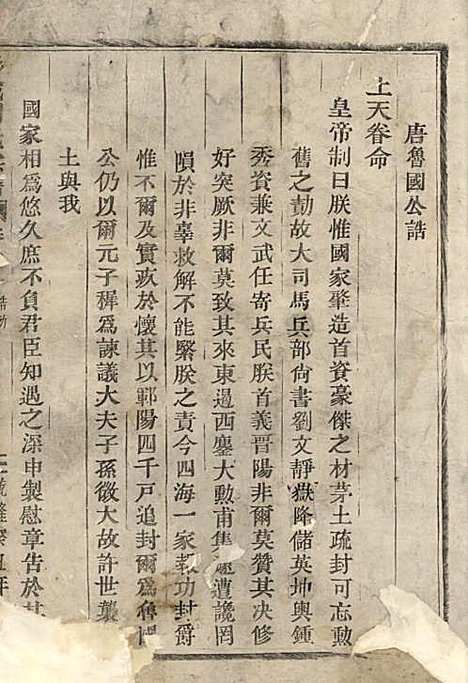 唐魯國公誥
上天眷命
皇帝制曰朕惟國家肇造首資豪傑之材茅土疏封可忘勲
舊之勣故大司馬兵部尙書劉文靜嶽降儲英坤輿鍾
秀資兼文武任寄兵民朕首義晋陽非爾莫贊其决修
好突厥非爾莫致其來東遏西鏖大勲甫集遭讒罔
隕於非辜救解不能緊朕之責今四海一家報功封爵
惟不爾及實疚於懷其以鄿陽四千戸追封爾爲魯國
公仍以爾元子穉爲諫議大夫子孫徵大故許世襲
土與我
國家相爲悠久庶不負君臣知遇之深申製慰章告於